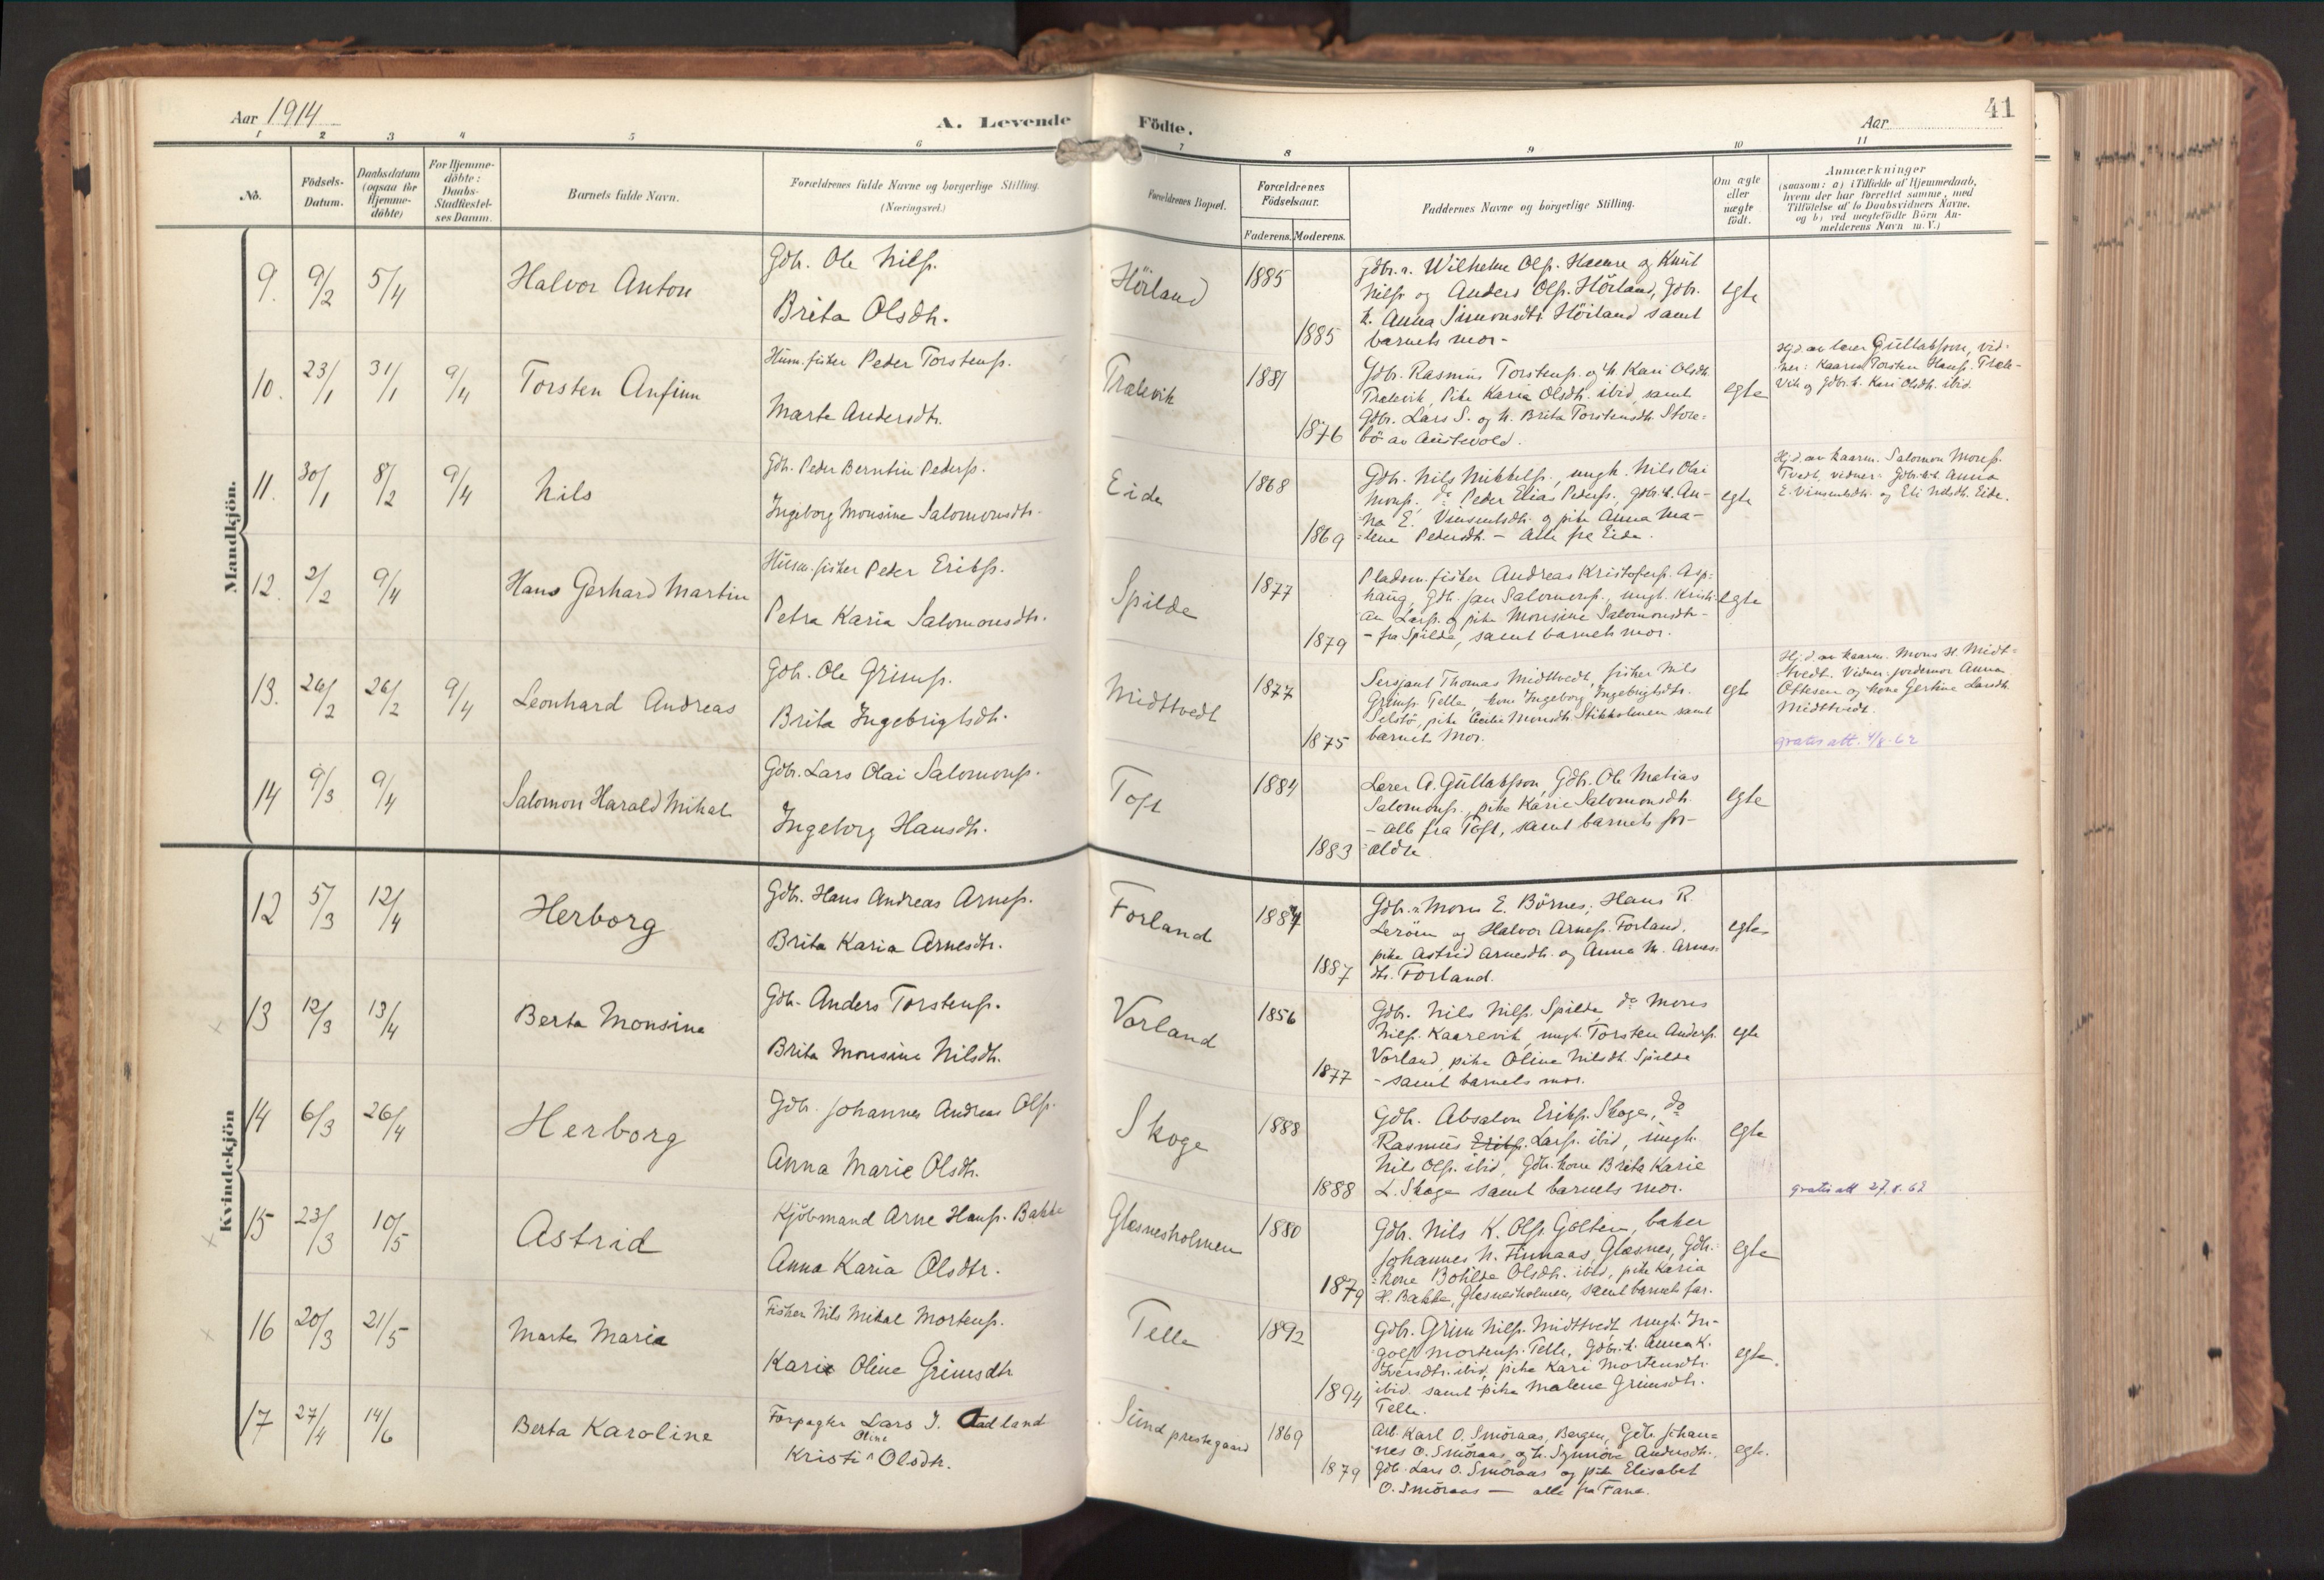 Aar 1914
A. Levende Födte.
Aar
41
1 2 3 4 5 6 7 8 9 10 11
No.
Födsels-
Datum.
Daabsdatum
(ogsaa for
Hjemme-
döbte)
For Hjemme-
döbte:
Daabs-
Stadfæstel-
ses Datum.
Barnets fulde Navn.
Forældrenes fulde Navne og borgerlige Stilling.
(Næringsvei.)
Forældrenes Bopæl.
Forældrenes
Födselsaar.
Faderens. Moderens.
Faddernes Navne og borgerlige Stilling.
Om ægte
eller
uægte
født.
Anmærkninger
(saasom: a) i Tilfælde af Hjemmedaab,
hvem der har forrettet samme, med
Tilföielse af to Daabsvidners Navne,
og b) ved uægtefödte Börn An-
melderens Navn m. V.)
Mandkjön.
9. 9/2 5/4 Halvor Anton
Gdbr. Ole Nilss.
Brita Olsdtr.
Hörland 1885 1885
gdbr.r. Wilhelm Olss. Haevre og Knut
Nilss og Anders Olss. Hörland, gdbr.
k. Anna Simonsdtr Höiland samt
barnets mor-
egte
10. 23/1 31/1 9/4 Torsten Anfinn
Husm. fisker Peder Torstenss.
Marta Andersdtr.
Trælevik 1881 1876
Gdbr. Rasmus Torstenss. og k Kari Olsdtr.
Trælevik, Pike Karia Olsdtr. ibid, samt
Gdbr. Lars S. og k. Brita Torstensdtr. Store-
bö av Austevold.
egte
Hjd. av lærer Gullaksson, vid-
ner: Kaarm Torsten Hanss. Træle-
vik og gdbr.k. Kari Olsdtr. ibid.
11. 30/1 8/2 9/4 Nils
Gdbr. Peder Berntin Pederss.
Ingeborg Monsine Salomonsdtr.
Eide 1868 1869
Gdbr. Nils Mikkelss., ungk. Nils Olai
Monss., do Peder Elias Pederss., gdbr.k. An-
na E. Vinsentsdtr. og pike Anna Ma-
lene Pedersdtr. - Alle fra Eide.
egte
Hj.d. av kaarm. Salomon Monss.
Tvedt, vidner: Gdbr.k. Anna
E. Vinsentsdtr. og Eli Nilsdtr. Eide.
12. 2/2 9/4 Hans Gerhard Martin
Husm. fisker Peder Erikss.
Petra Karia Salomonsdtr.
Spilde 1877 1879
Pladsm. fisker Andreas Kristoferss. Asp-
haug, gdbr. Jan Salomonss., ungk. Kristi-
an Larss. og pike Monsine Salomonsdtr-
- fra Spilde, samt barnets mor.
egte
13. 26/2 26/2 9/4 Leonhard Andreas
Gdbr. Ole Grimss.
Brita Ingebrigtsdtr.
Midttvedt 1877 1875
Sersjant Thomas Midttvedt, fisker Nils
Grimss. Telle, kone Ingeborg Ingebrigtsdtr.
Selstö, pike Cecilie Monsdtr. Stikholmen samt
barnets Mor.
egte
Hj.d. av kaarm. Mons H. Midt-
tvedt. Vidner: jordemor Anna
Ottesen og kone Gertine Larsdtr.
Midttvedt.
gratis att. 4/8-62
14 9/3 9/4 Salomon Harald Mikal
Gdbr. Lars Olai Salomonss.
Ingeborg Hansdtr.
Toft 1884 1883
Lærer A. Gullaksson, Gdbr. Ole Matias
Salomonss., pike Karie Salomonsdtr.
- alle fra Toft, samt barnets for-
ældre
egte
Kvindekjön
12 5/3 12/4 Herborg
Gdbr. Hans Andreas Arness.
Brita Karia Arnesdtr.
Forland 1884 1887
Gdbr.r Mons E. Börnes, Hans R.
Leröen og Halvor Arness. Forland,
pike Astrid Arnesdtr. og Anna M. Arnes-
dtr. Forland.
egte
13 12/3 13/4 Berta Monsina
Gdbr. Anders Torstenss.
Brita Monsine Nilsdtr.
Vorland 1856 1877
Gdbr. Nils Nilss. Spilde, do Mons
Nilss. Kaarevik, ungk. Torsten Anderss.
Vorland, pike Oline Nilsdtr. Spilde
- samt barnets mor.
egte
14 6/3 26/4 Herborg
Gdbr. Johannes Andreas Olss.
Anna Marie Olsdtr.
Skoge 1888 1888
Gdbr. Absalon Erikss. Skoge, do
Rasmus Erikss. Larss. ibid, ungk.
Nils Olss. ibid, Gdbr. kone Brita Karie
L. Skoge samt barnets mor.
egte
gratis att 27.8.62
15 23/3 10/5 Astrid
Kjöbmand Arne Hanss. Bakke
Anna Karia Olsdtr.
Glesnesholmen 1880 1879
Gdbr. Nils K. Olss. Golten, baker
Johannes N. Finnaas, Glesnes, Gdbr.
kone Botilde Olsdtr. ibid, pike Karia
H. Bakke, Glesnesholmen, samt barnets far.
egte
16 20/3 21/5 Marta Maria
Fisker Nils Mikal Mortenss.
Karie Oline Grimsdtr
Telle 1892 1894
Gdbr. Grim Nilss. Midttvedt ungk. In-
golf Mortenss. Telle, Gdbr.k. Anna K.
Iversdtr. ibid, pike Kari Mortensdtr.
ibid. samt pike Malene Grimsdtr.
Telle.
egte.
17 27/4 14/6 Berta Karoline
Forpagter Lars J. Aadland
Oline
Kristi ^ Olsdtr.
Sund prestegaard 1869 1879
Arb. Karl O. Smöraas, Bergen, Gdb. Johan-
nes O. Smöraas, og k. Synnöve Andersdtr.
gdb. Lars O. Smöraas og pike Elisabet
O. Smöraas — alle fra Fana.
egte.